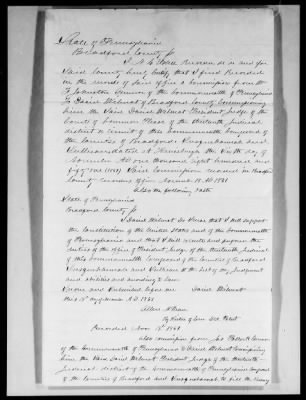 State of Pennsylvania
Bradford County ss
I N C Recorder in and for
Said County hereby Certify that I find Recorded
in the records of said office a Commission from
F Johnston Governor of the Commonwealth of Pennsylvania
To David Wilmot of Bradford County Commissioning
him the Said David Wilmot President Judge of the
Courts of Common Pleas of the thirteenth Judicial
district or circuit of this Commonwealth Composed of
the Counties of Bradford Susquehanna and
dated at Harrisburg the day of
November AD one thousand eight hundred and
fifty one (1851) Said Commission recorded in Bradford
County recording office November 15. AD. 1851
Also the following oath
State of Pennsylvania
Bradford County ss
I David Wilmot do Swear that I will support
the Constitution of the United States and of the Commonwealth
of Pennsylvania and that I will and perform the
duties of the office of President Judge of the thirteenth Judicial
of this Commonwealth Composed of the Counties of Bradford
Susquehanna and Sullivan to the best of my Judgment
and abilities and according to law
Sworn and Subscribed before me David Wilmot
this 15th day of November A.D. 1851
Allen McKean
By Com. Ded. Potest
Recorded Nov 15th 1851
Also commission from Jas Pollock Governor
of the Commonwealth of Pennsylvania to David Wilmot Commissioning
him the Said David Wilmot President Judge of the thirteenth
Judicial district of the Commonwealth of Pennsylvania Composed
of the Counties of Bradford and Susquehanna to fill the vacancy